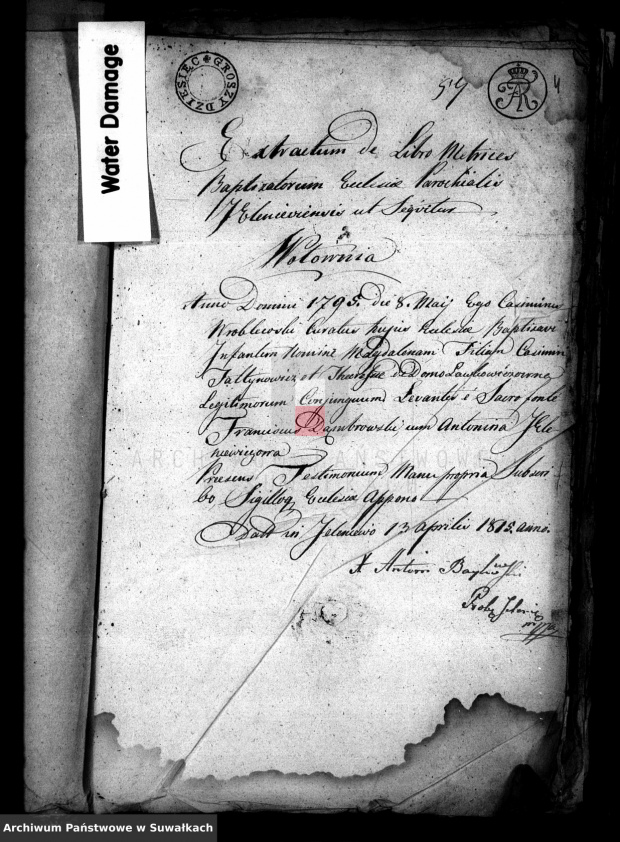 Water Damage
GROSZY DZIESIĘC
59
4
Extractum de Libro Metrices
Baptizatorum Ecclesiæ Parochialis
Jeleneviensis ut Seqvitur
Wołownia
Anno Domini 1795. die 8. Maij Ego Casimirus
Wroblewski Curatus hujus Ecclesiæ Baptisavi
Infantem Nomine Magdalenam Filiam Casimiri
et de Domo
Legitimorum Conjugum Levantes e Sacro fonte
Franciscus Dąmbrowski cum Antonina Jele
niewiczowa
Præsens Testimonium Manu propria Subscri
bo Sigilloq Ecclesiæ Appono
Datt in Jeleniewo 13 Aprilis 1815. anno.
X Antoni
ARCHIWUM PAŃSTWOWE
Archiwum Państwowe w Suwałkach